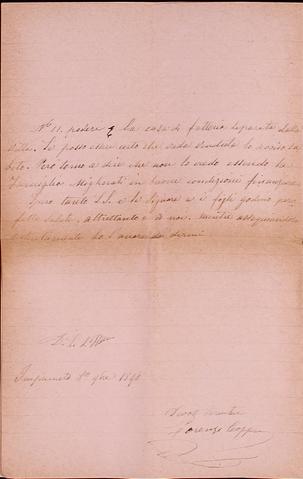 N° 11. podere e la casa di fattoria separata dalla
villa. Se posso essere certo che veda venderla lo avviso su
bito. Però torno a dire che non lo credo essendo la
famiglia Migliorati in buone condizioni finanziarie.
Spero tanto S.S. e la Signora e i figli godino per
fetta salute, altrettanto è di noi. mentre assegnandomi
ho l'onore di dirmi
Di S. S. Ill
Impruneta 8bre 1890
Devot Servitore
Lorenzo